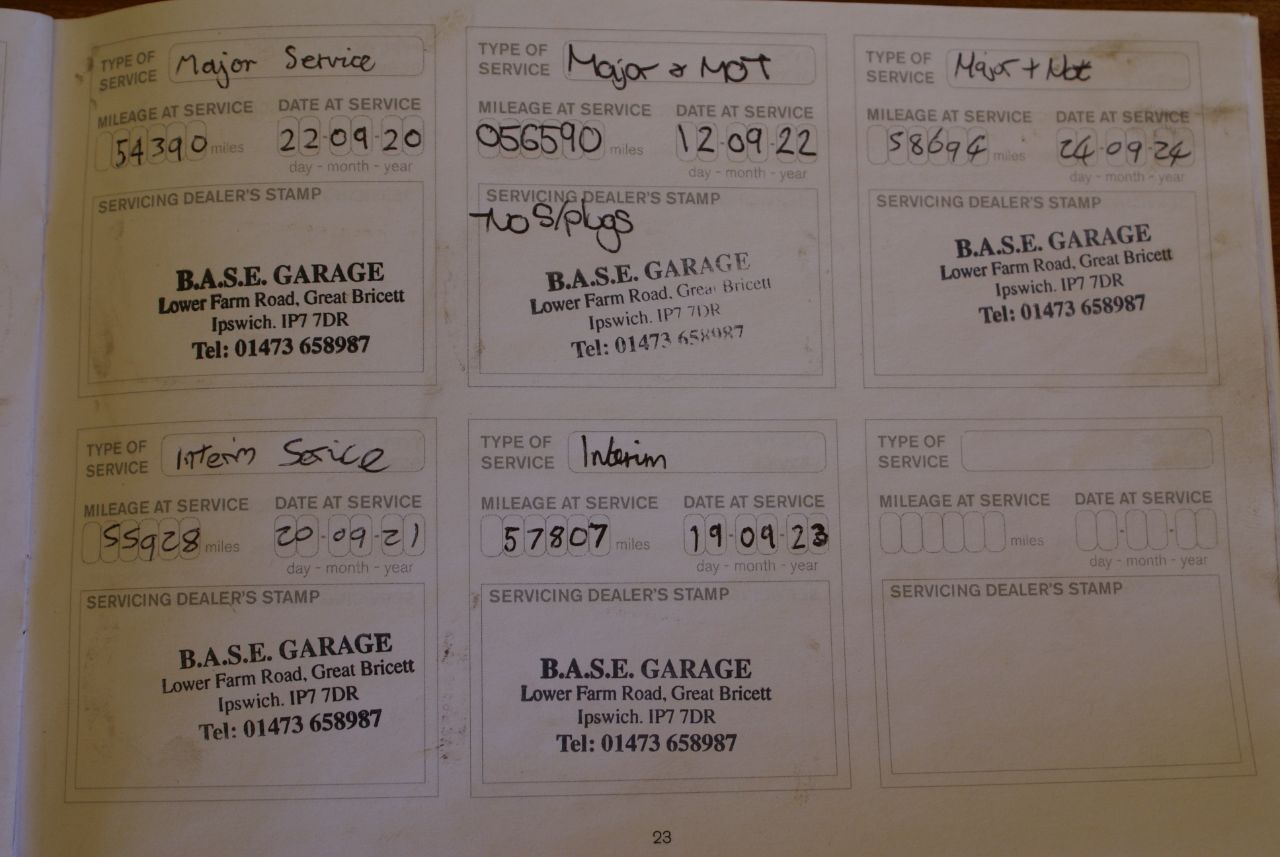 TYPE OF SERVICE Major Service
MILEAGE AT SERVICE DATE AT SERVICE
54390 miles 22-09-20
day - month - year
SERVICING DEALER'S STAMP
B.A.S.E. GARAGE
Lower Farm Road, Great Bricett
Ipswich. IP7 7DR
Tel: 01473 658987
TYPE OF SERVICE Major & MOT
MILEAGE AT SERVICE DATE AT SERVICE
056590 miles 12-09-22
day - month - year
SERVICING DEALER'S STAMP
-NO S/plugs
B.A.S.E. GARAGE
Lower Farm Road, Great Bricett
Ipswich. IP7 7DR
Tel: 01473 658987
TYPE OF SERVICE Major + Mot
MILEAGE AT SERVICE DATE AT SERVICE
58694 miles 24-09-24
day - month - year
SERVICING DEALER'S STAMP
B.A.S.E. GARAGE
Lower Farm Road, Great Bricett
Ipswich. IP7 7DR
Tel: 01473 658987
TYPE OF SERVICE Interim Serice
MILEAGE AT SERVICE DATE AT SERVICE
55928 miles 20-09-21
day - month - year
SERVICING DEALER'S STAMP
B.A.S.E. GARAGE
Lower Farm Road, Great Bricett
Ipswich. IP7 7DR
Tel: 01473 658987
TYPE OF SERVICE Interim
MILEAGE AT SERVICE DATE AT SERVICE
57807 miles 19-09-23
day - month - year
SERVICING DEALER'S STAMP
B.A.S.E. GARAGE
Lower Farm Road, Great Bricett
Ipswich. IP7 7DR
Tel: 01473 658987
TYPE OF SERVICE
MILEAGE AT SERVICE DATE AT SERVICE
miles - -
day - month - year
SERVICING DEALER'S STAMP
23